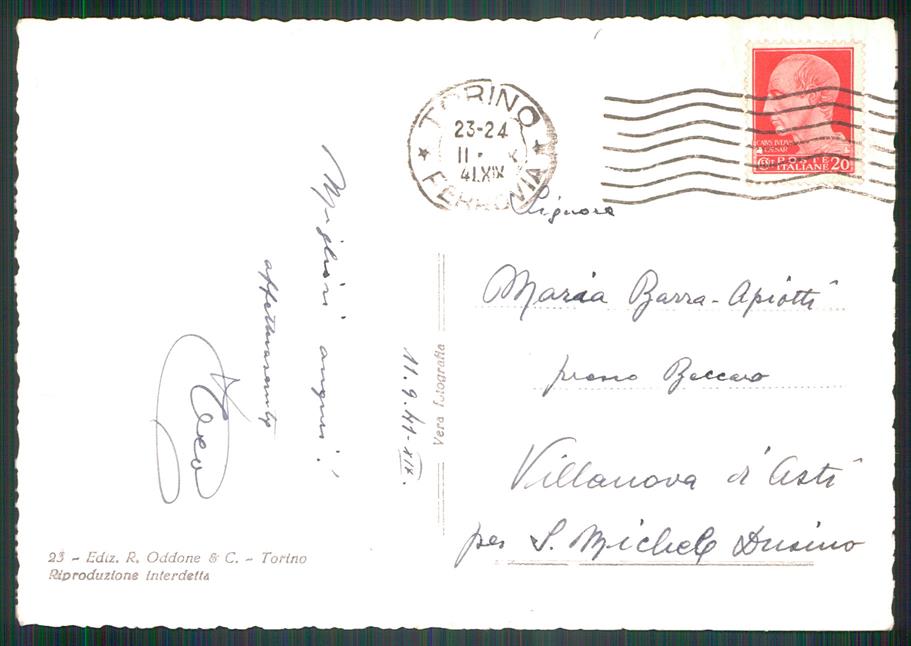 TORINO
23-24
11 · X
41.XIX
FERROVIA
CAIVS IVLIVS
CAESAR
POSTE
ITALIANE 20
Signora
Maria Barra-Apiotti
presso Beccaro
Villanova d'Asti
per S. Michele Dusino
11.9.41-XIX.
Migliori auguri!
affettuosamente
Vera fotografia
23 - Ediz. R. Oddone & C. - Torino
Riproduzione interdetta